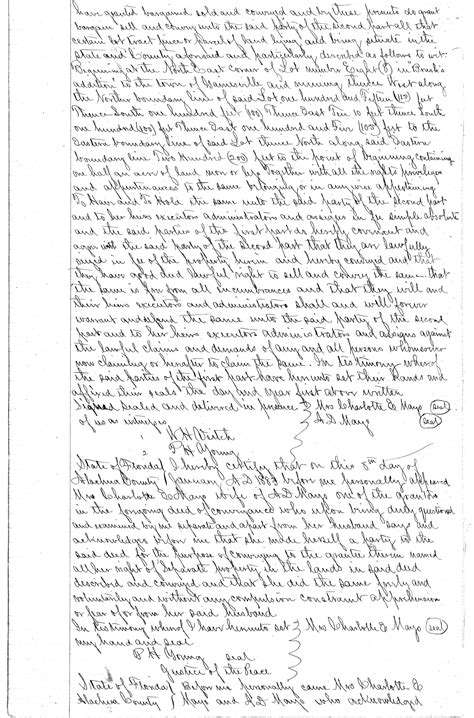 have granted bargained sold and conveyed and by these presents do grant
bargain sell and convey unto the said party of the second part all that
certain lot tract piece or parcel of land lying and being situate in the
State and County aforesaid and particularly described as follows to wit:
Beginning at the North East corner of Lot number Eight (8) in "Brush's
addition" to the town of Gainesville and running thence West along
the Northern boundary line of said Lot one hundred and Fifteen (115) feet
Thence South one hundred feet (100) Thence East Ten 10 feet thence South
one hundred (100) feet Thence East one hundred and Five (105) feet to the
Eastern boundary line of said Lot thence North along said Eastern
boundary line Two Hundred (200) feet to the point of beginning containing
one half an acre of land more or less Together with all the rights privileges
and appurtenances to the same belonging or in any wise appertaining
To Have and To Hold the same unto the said party of the second part
and to her heirs executors administrators and assigns in fee simple absolute
and the said parties of the first part do hereby covenant and
agree with the said party of the second part that they are lawfully
seized in fee of the property herein and hereby conveyed and that
they have good and lawful right to sell and convey the same that
the same is free from all incumbrances and that they will and
their heirs executors and administrators shall and will forever
warrant and defend the same unto the said party of the second
part and to her heirs executors administrators and assigns against
the lawful claims and demands of any and all persons whomsoever
now claiming or hereafter to claim the same. In testimony whereof
the said parties of the first part have hereunto set their hands and
affixed their seals the day and year first above written
Signed sealed and delivered in presence Mrs Charlotte E Mayo (seal)
of us as witnesses A D Mayo (seal)
P H Young
State of Florida I hereby certify that on this 8th day of
Alachua County January AD 1883 before me personally appeared
Mrs Charlotte E Mayo wife of A D Mayo one of the grantors
in the foregoing deed of conveyance who upon being duly questioned
and examined by me separate and apart from her husband says and
acknowledges before me that she made herself a party to the
said deed for the purpose of conveying to the grantee therein named
all her right of separate property in the lands in said deed
described and conveyed and that she did the same freely and
voluntarily and without any compulsion constraint apprehension
or fear of or from her said husband
In testimony whereof I have hereunto set Mrs Charlotte E Mayo (seal)
my hand and seal
P H Young seal
Justice of the Peace
State of Florida Before me personally came Mrs Charlotte E
Alachua County Mayo and A D Mayo who acknowledged